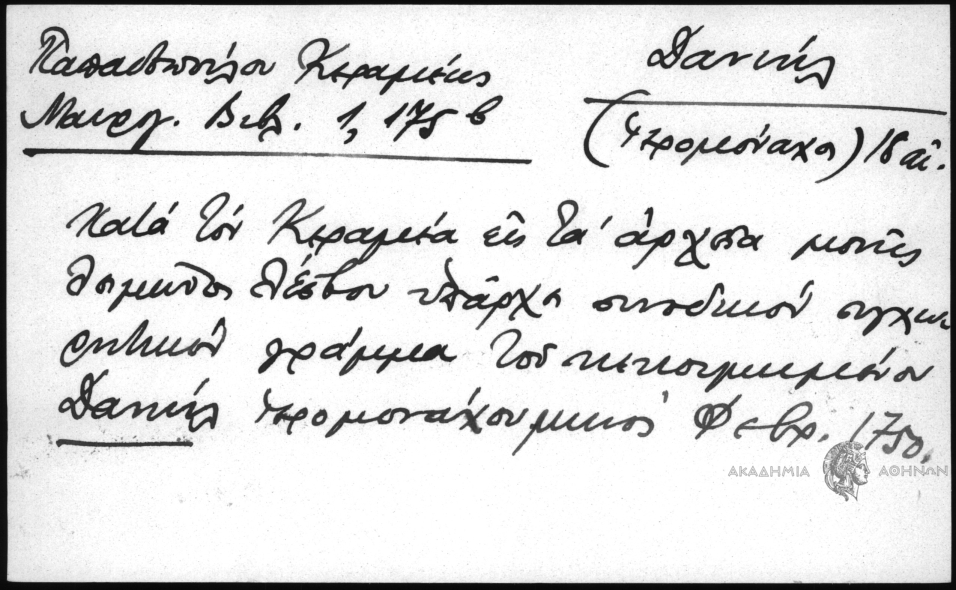 Παπαδοπούλου Κεραμέως
Μαυρογ. Βιβλ. 1, 175 β
Δανιήλ
(ιερομόναχοι) 18 αἰ.
Κατά τόν Κεραμέα εἰς τά ἀρχεῖα μονῆς
Λειμῶνος Λέσβου ὑπάρχει συνοδικόν συγχω
ρητικόν γράμμα τοῦ κεκοιμημένου
Δανιήλ ιερομονάχου μηνός Φεβρ. 1750.
ΑΚΑΔΗΜΙΑ ΑΘΗΝΩΝ